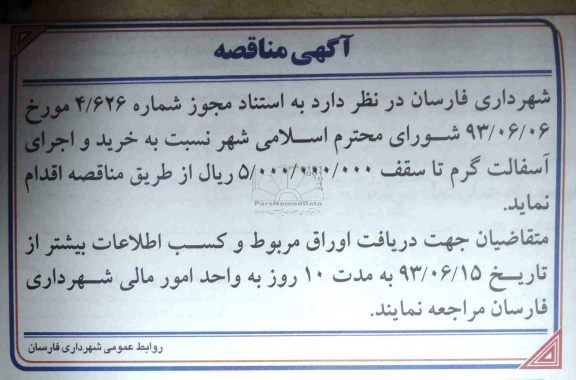 آگهی مناقصه
شهرداری فارسان در نظر دارد به استناد مجوز شماره ۴/۶۲۶ مورخ
۹۳/۰۶/۰۶ شورای محترم اسلامی شهر نسبت به خرید و اجرای
آسفالت گرم تا سقف ۵/۰۰۰/۰۰۰/۰۰۰ ریال از طریق مناقصه اقدام
نماید.
ParsNamadData
متقاضیان جهت دریافت اوراق مربوط و کسب اطلاعات بیشتر از
تاریخ ۹۳/۰۶/۱۵ به مدت ۱۰ روز به واحد امور مالی شهرداری
فارسان مراجعه نمایند.
روابط عمومی شهرداری فارسان